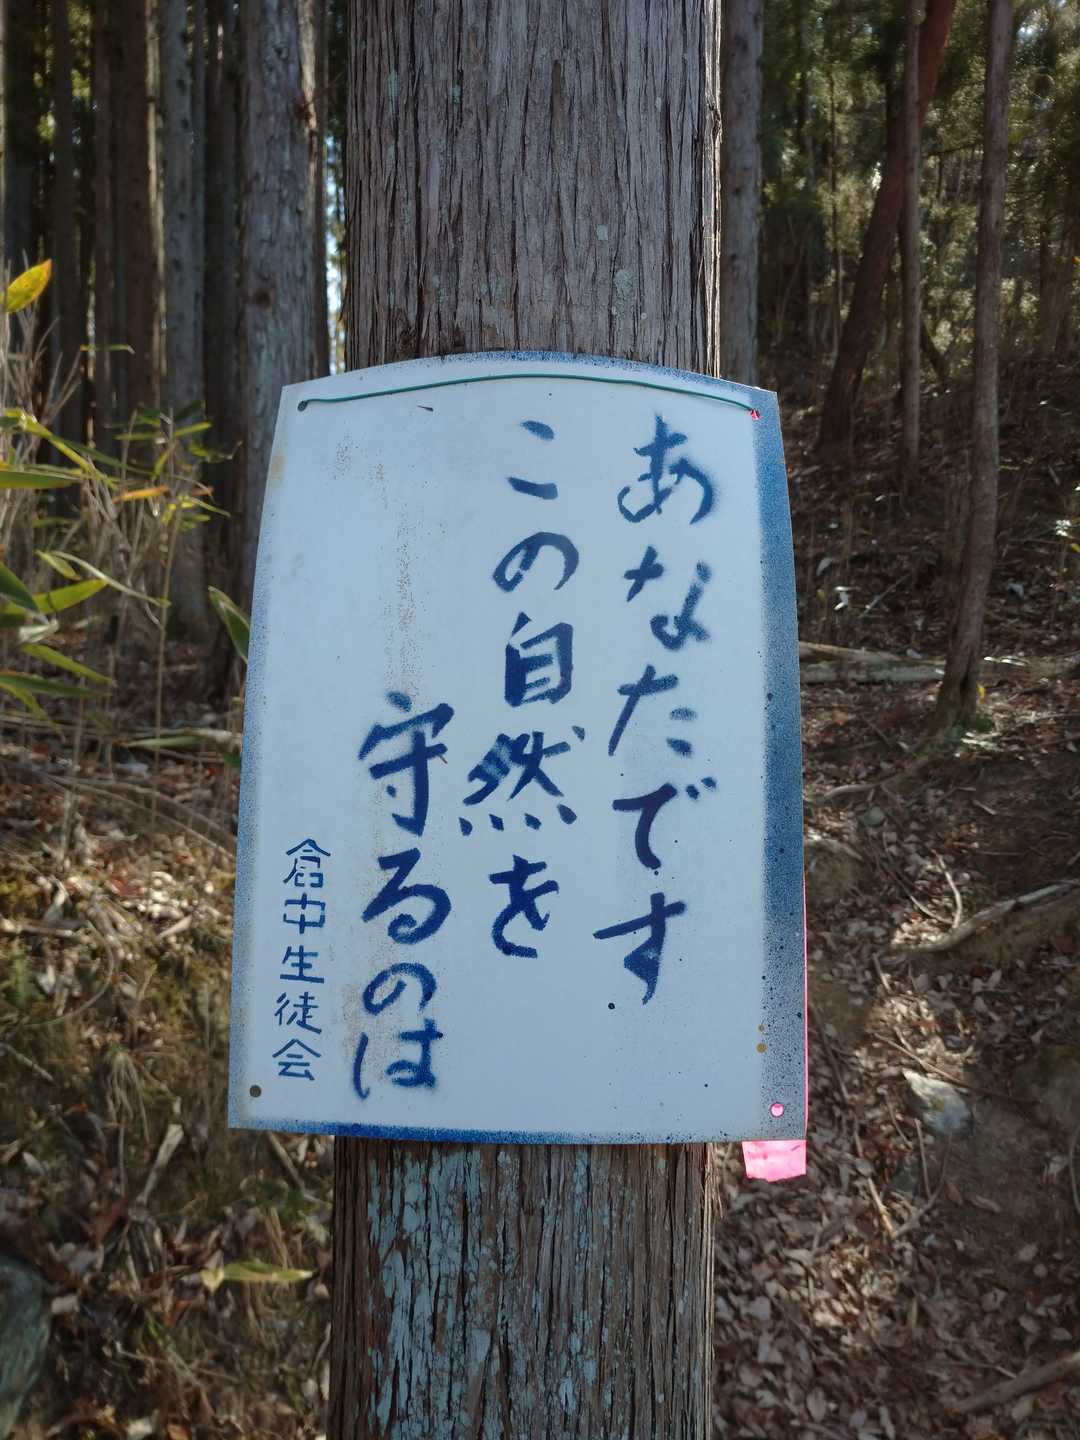 あなたです
この自然を
守るのは
倉中生徒会